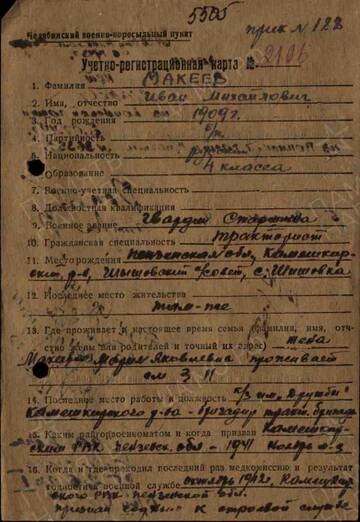 5505
прик № 122
Челябинский военно-пересыльный пункт
Учетно-регистрационная карта № 2106
1. Фамилия МАКЕЕВ
2. Имя, отчество Иван Михайлович
3. Год рождения 1909 г.
4. Партийность б/п
5. Национальность русский
6. Образование 4 класса
7. Военно-учетная специальность
8. Должностная квалификация
9. Военное звание Гвардии Старшина
10. Гражданская специальность тракторист
11. Место рождения Пензенская обл, Камешкир-
ский р-н, Шишовский с/совет, с. Шишовка
12. Последнее место жительства
там-же
13. Где проживает в настоящее время семья (фамилия, имя, отче-
ство жены или родителей и точный их адрес) жена
Макеева Мария Яковлевна проживает
см 3 11
14. Последнее место работы и должность к/з им. Дружбы
Камешкирского р-на - бригадир тракт. бригады
15. Каким райгорвоенкоматом и когда призван Камешкир-
ский РВК Пензен. обл. - 1941
16. Когда и где проходил последний раз медкомиссию и результат
годности военной службе октябрь 1942г. Камешкир-
ского РВК Пензенской обл.
признан годным к строевой службе